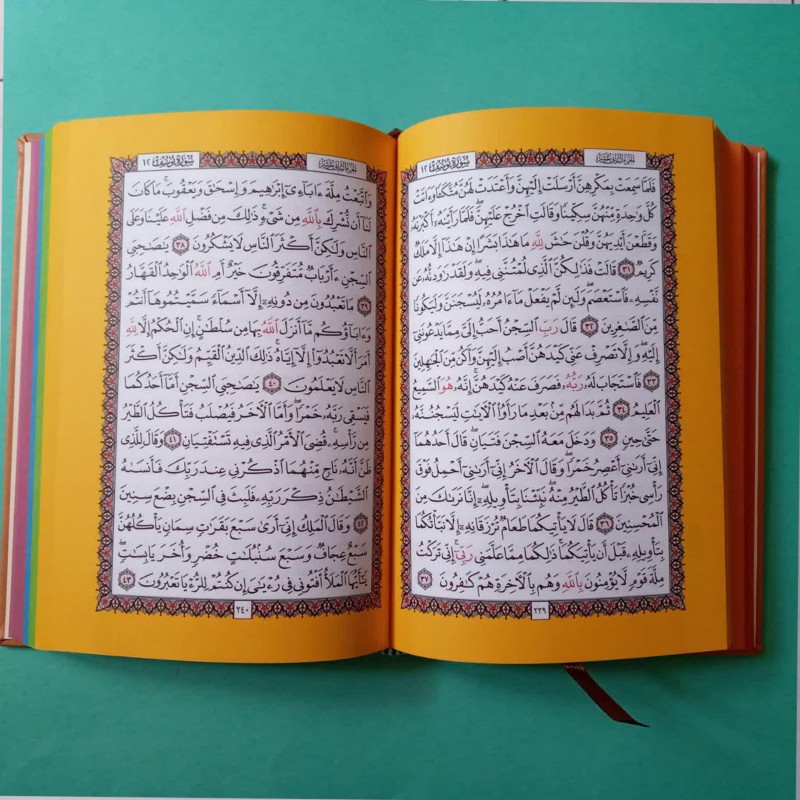 سورة يوسف ١٢
الجزء الثاني عشر
فَلَمَّا سَمِعَتْ بِمَكْرِهِنَّ أَرْسَلَتْ إِلَيْهِنَّ وَأَعْتَدَتْ لَهُنَّ مُتَّكَـًٔا وَءَاتَتْ
كُلَّ وَٰحِدَةٍ مِّنْهُنَّ سِكِّينًا وَقَالَتِ ٱخْرُجْ عَلَيْهِنَّ ۖ فَلَمَّا رَأَيْنَهُۥٓ أَكْبَرْنَهُۥ
وَقَطَّعْنَ أَيْدِيَهُنَّ وَقُلْنَ حَٰشَ لِلَّهِ مَا هَٰذَا بَشَرًا إِنْ هَٰذَآ إِلَّا مَلَكٌ
كَرِيمٌ ٣١ قَالَتْ فَذَٰلِكُنَّ ٱلَّذِى لُمْتُنَّنِى فِيهِ ۖ وَلَقَدْ رَٰوَدتُّهُۥ عَن
نَّفْسِهِۦ فَٱسْتَعْصَمَ ۖ وَلَئِن لَّمْ يَفْعَلْ مَآ ءَامُرُهُۥ لَيُسْجَنَنَّ وَلَيَكُونًا
مِّنَ ٱلصَّٰغِرِينَ ٣٢ قَالَ رَبِّ ٱلسِّجْنُ أَحَبُّ إِلَىَّ مِمَّا يَدْعُونَنِىٓ
إِلَيْهِ ۖ وَإِلَّا تَصْرِفْ عَنِّى كَيْدَهُنَّ أَصْبُ إِلَيْهِنَّ وَأَكُن مِّنَ ٱلْجَٰهِلِينَ
٣٣ فَٱسْتَجَابَ لَهُۥ رَبُّهُۥ فَصَرَفَ عَنْهُ كَيْدَهُنَّ ۚ إِنَّهُۥ هُوَ ٱلسَّمِيعُ
ٱلْعَلِيمُ ٣٤ ثُمَّ بَدَا لَهُم مِّنۢ بَعْدِ مَا رَأَوُا۟ ٱلْـَٔايَٰتِ لَيَسْجُنُنَّهُۥ
حَتَّىٰ حِينٍ ٣٥ وَدَخَلَ مَعَهُ ٱلسِّجْنَ فَتَيَانِ ۖ قَالَ أَحَدُهُمَآ
إِنِّىٓ أَرَىٰنِىٓ أَعْصِرُ خَمْرًا ۖ وَقَالَ ٱلْـَٔاخَرُ إِنِّىٓ أَرَىٰنِىٓ أَحْمِلُ فَوْقَ
رَأْسِى خُبْزًا تَأْكُلُ ٱلطَّيْرُ مِنْهُ ۖ نَبِّئْنَا بِتَأْوِيلِهِۦٓ ۖ إِنَّا نَرَىٰكَ مِنَ
ٱلْمُحْسِنِينَ ٣٦ قَالَ لَا يَأْتِيكُمَا طَعَامٌ تُرْزَقَانِهِۦٓ إِلَّا نَبَّأْتُكُمَا
بِتَأْوِيلِهِۦ قَبْلَ أَن يَأْتِيَكُمَا ۚ ذَٰلِكُمَا مِمَّا عَلَّمَنِى رَبِّىٓ ۚ إِنِّى تَرَكْتُ
مِلَّةَ قَوْمٍ لَّا يُؤْمِنُونَ بِٱللَّهِ وَهُم بِٱلْـَٔاخِرَةِ هُمْ كَٰفِرُونَ ٣٧
٢٣٩
سورة يوسف ١٢
الجزء الثاني عشر
وَٱتَّبَعْتُ مِلَّةَ ءَابَآءِىٓ إِبْرَٰهِيمَ وَإِسْحَٰقَ وَيَعْقُوبَ ۚ مَا كَانَ
لَنَآ أَن نُّشْرِكَ بِٱللَّهِ مِن شَىْءٍ ۚ ذَٰلِكَ مِن فَضْلِ ٱللَّهِ عَلَيْنَا وَعَلَى
ٱلنَّاسِ وَلَٰكِنَّ أَكْثَرَ ٱلنَّاسِ لَا يَشْكُرُونَ ٣٨ يَٰصَىٰحِبَىِ
ٱلسِّجْنِ ءَأَرْبَابٌ مُّتَفَرِّقُونَ خَيْرٌ أَمِ ٱللَّهُ ٱلْوَٰحِدُ ٱلْقَهَّارُ
٣٩ مَا تَعْبُدُونَ مِن دُونِهِۦٓ إِلَّآ أَسْمَآءً سَمَّيْتُمُوهَآ أَنتُمْ
وَءَابَآؤُكُم مَّآ أَنزَلَ ٱللَّهُ بِهَا مِن سُلْطَٰنٍ ۚ إِنِ ٱلْحُكْمُ إِلَّا لِلَّهِ
أَمَرَ أَلَّا تَعْبُدُوٓا۟ إِلَّآ إِيَّاهُ ۚ ذَٰلِكَ ٱلدِّينُ ٱلْقَيِّمُ وَلَٰكِنَّ أَكْثَرَ
ٱلنَّاسِ لَا يَعْلَمُونَ ٤٠ يَٰصَىٰحِبَىِ ٱلسِّجْنِ أَمَّآ أَحَدُكُمَا
فَيَسْقِى رَبَّهُۥ خَمْرًا ۖ وَأَمَّا ٱلْـَٔاخَرُ فَيُصْلَبُ فَتَأْكُلُ ٱلطَّيْرُ
مِن رَّأْسِهِۦ ۚ قُضِىَ ٱلْأَمْرُ ٱلَّذِى فِيهِ تَسْتَفْتِيَانِ ٤١ وَقَالَ لِلَّذِى
ظَنَّ أَنَّهُۥ نَاجٍ مِّنْهُمَا ٱذْكُرْنِى عِندَ رَبِّكَ فَأَنسَىٰهُ
ٱلشَّيْطَٰنُ ذِكْرَ رَبِّهِۦ فَلَبِثَ فِى ٱلسِّجْنِ بِضْعَ سِنِينَ
٤٢ وَقَالَ ٱلْمَلِكُ إِنِّىٓ أَرَىٰ سَبْعَ بَقَرَٰتٍ سِمَانٍ يَأْكُلُهُنَّ
سَبْعٌ عِجَافٌ وَسَبْعَ سُنۢبُلَٰتٍ خُضْرٍ وَأُخَرَ يَابِسَٰتٍ ۖ
يَٰٓأَيُّهَا ٱلْمَلَأُ أَفْتُونِى فِى رُءْيَٰىَ إِن كُنتُمْ لِلرُّءْيَا تَعْبُرُونَ ٤٣
٢٤٠